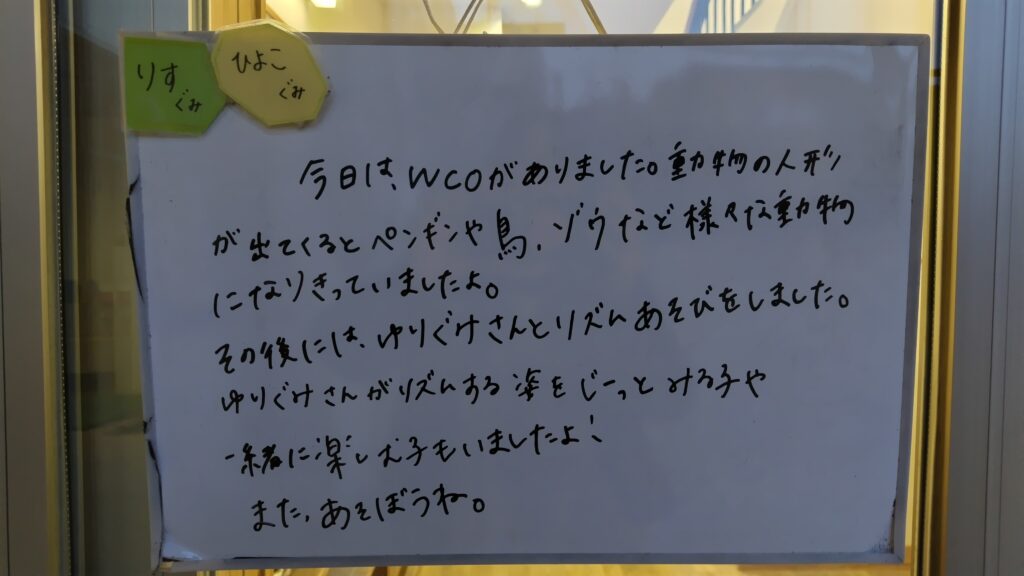 りす
ぐみ
ひよこ
ぐみ
今日は、WCOがありました。動物の人形
が出てくるとペンギンや鳥、ゾウなど様々な動物
になりきっていましたよ。
その後には、ゆりぐみさんとリズムあそびをしました。
ゆりぐみさんがリズムする姿をじーっとみる子や
一緒に楽しむ子もいましたよ！
また、あそぼうね。